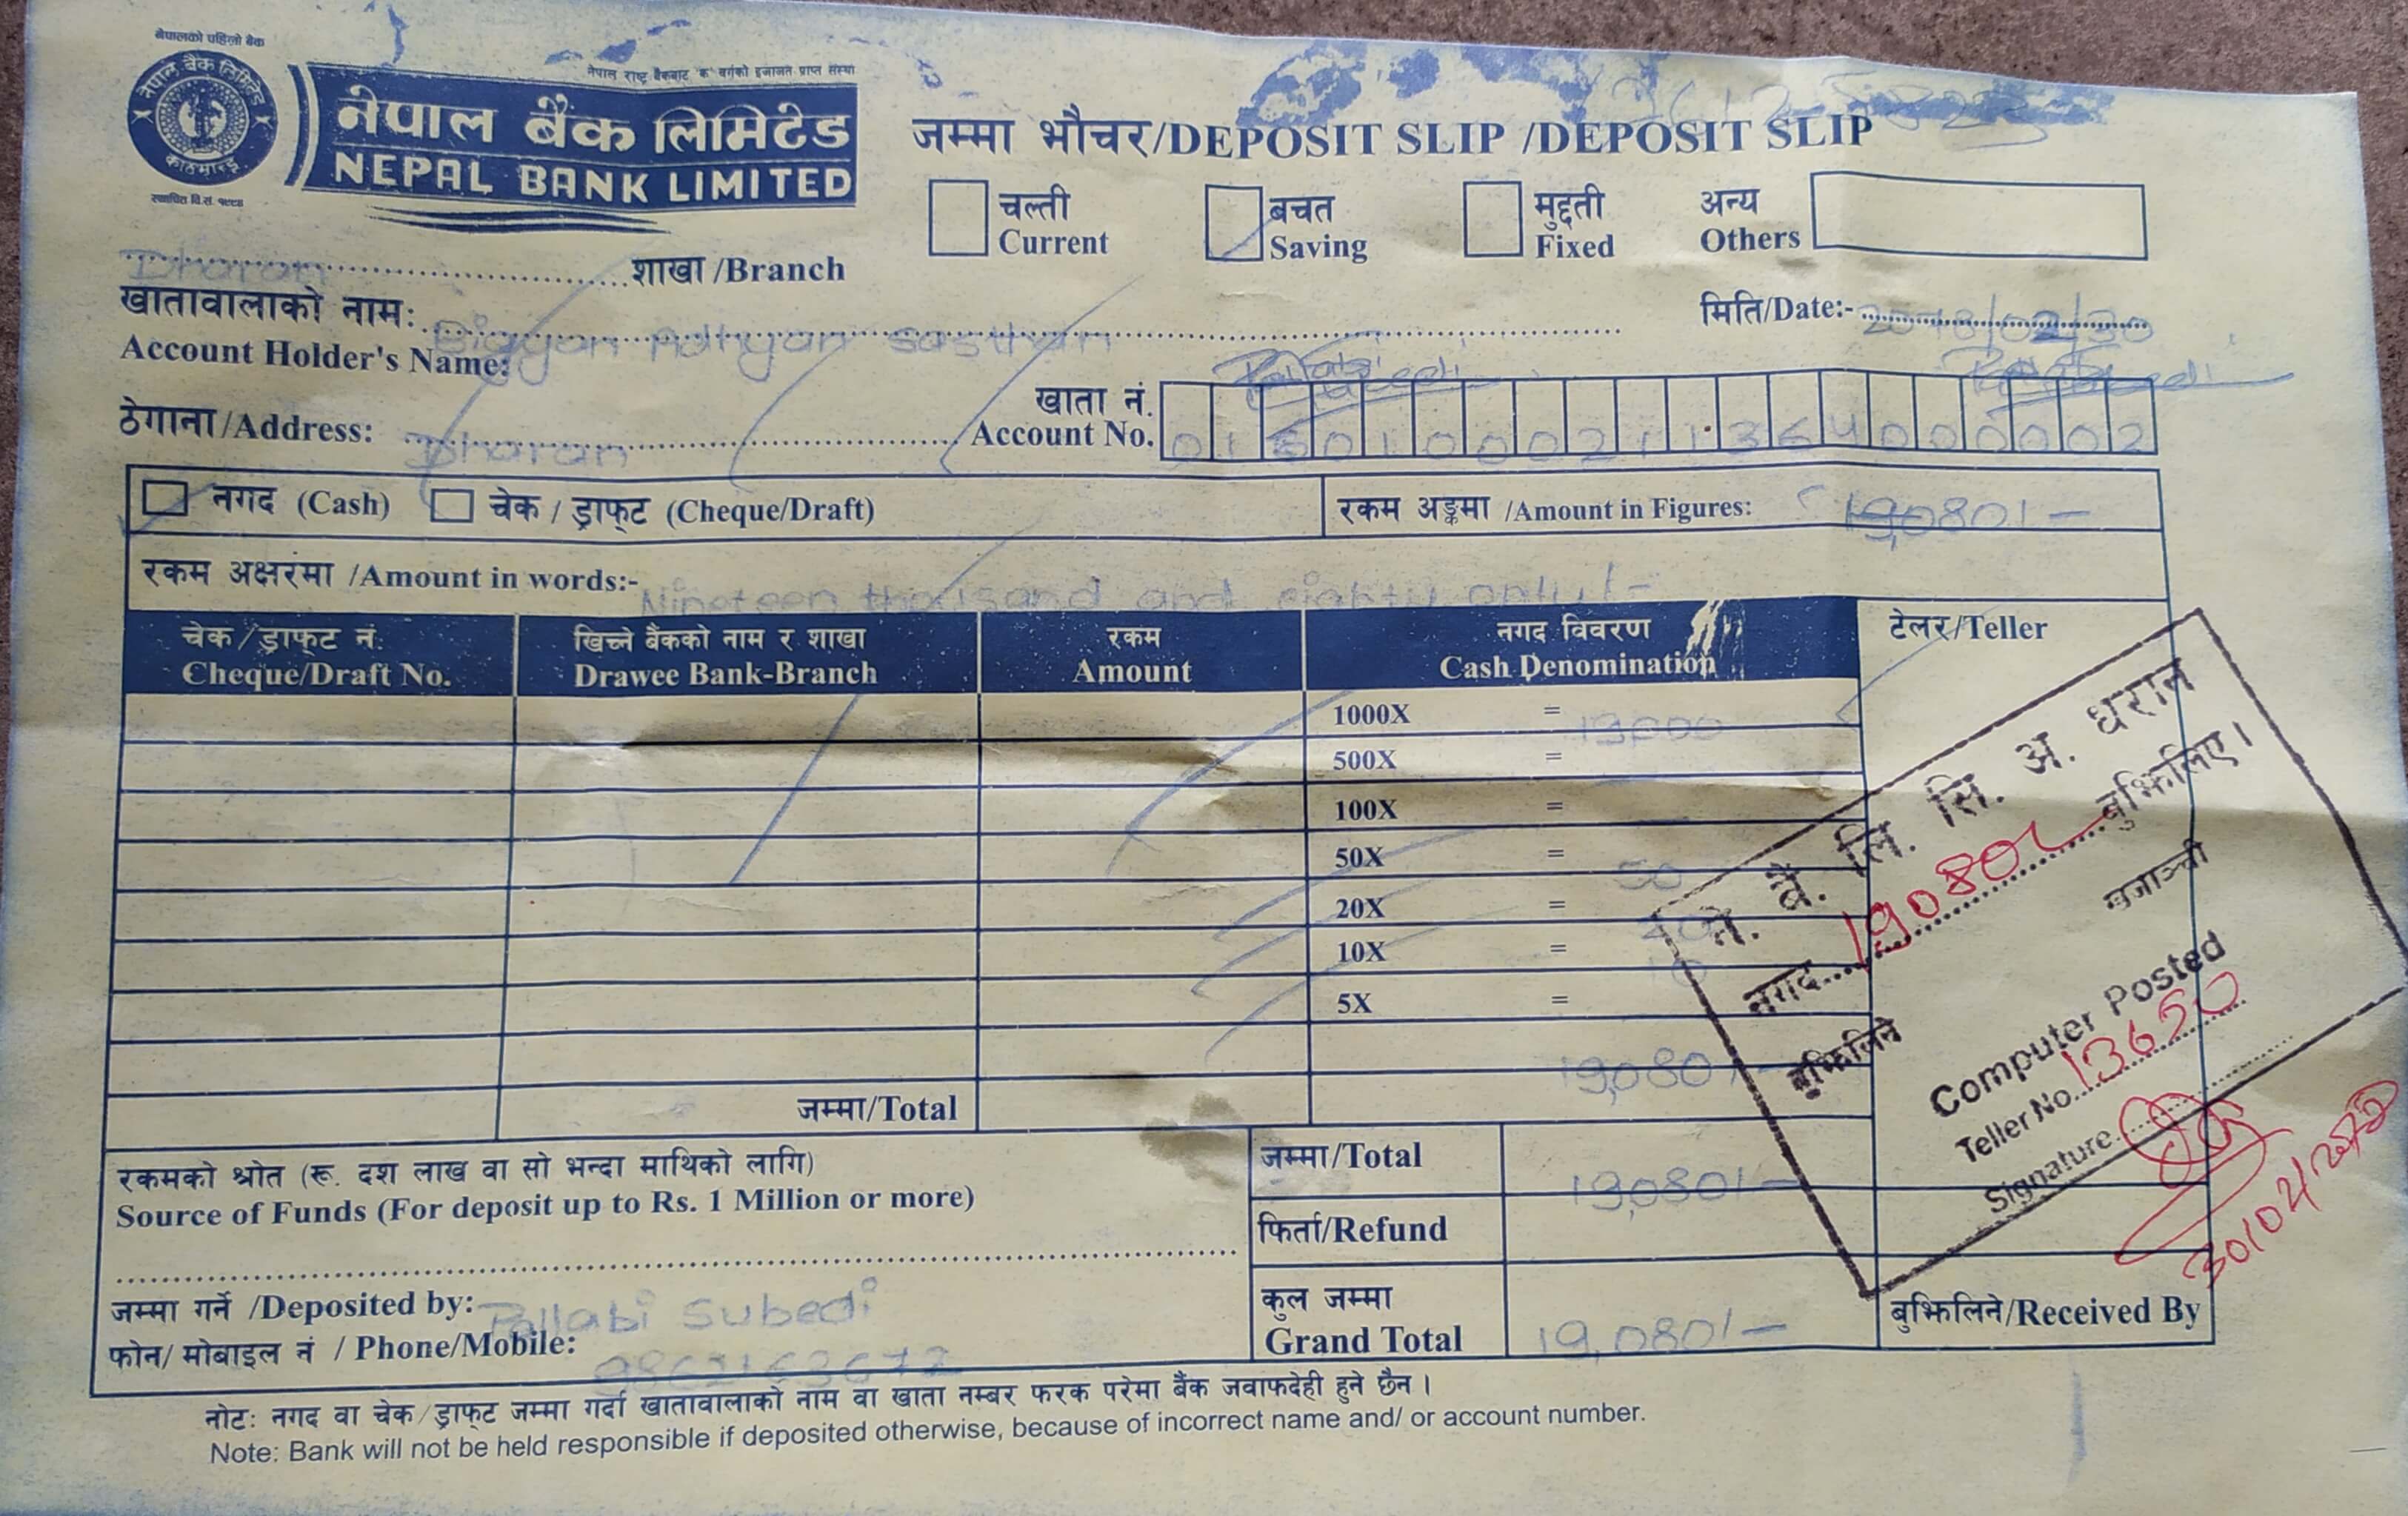 नेपालको पहिलो बैंक
नेपाल बैंक लिमिटेड
काठमाण्डू
स्थापित वि.सं. १९९४
नेपाल राष्ट्र बैंकबाट 'क' वर्गको इजाजत प्राप्त संस्था
नेपाल बैंक लिमिटेड
NEPAL BANK LIMITED
जम्मा भौचर/DEPOSIT SLIP /DEPOSIT SLIP
चल्ती
Current
बचत
Saving
मुद्दती
Fixed
अन्य
Others
Dharan शाखा /Branch
मिति/Date:- 2078/02/30
खातावालाको नाम:
Account Holder's Name:
Pallabi Subedi
ठेगाना/Address: Dharan
खाता नं.
Account No. 0 1 5 0 1 0 0 0 2 1 1 3 6 4 0 0 0 0 0 2
नगद (Cash) चेक / ड्राफ्ट (Cheque/Draft)
रकम अङ्कमा /Amount in Figures: 19,080/-
रकम अक्षरमा /Amount in words:- Nineteen thousand and eighty only/-
चेक/ड्राफ्ट नं. Cheque/Draft No.
खिच्ने बैंकको नाम र शाखा Drawee Bank-Branch
रकम Amount
नगद विवरण Cash Denomination
टेलर/Teller
1000X = 19,000
500X =
100X =
50X = 50
20X = 20
10X = 10
5X =
19,080/-
जम्मा/Total
ने. बैं. लि. सि. अ. धरान
नगद 19080/- बुझिलिए।
बुझिलिने खजाञ्ची
Computer Posted
Teller No. 13650
Signature
30/02/2078
रकमको श्रोत (रू. दश लाख वा सो भन्दा माथिको लागि)
Source of Funds (For deposit up to Rs. 1 Million or more)
जम्मा/Total 19,080/-
फिर्ता/Refund
कुल जम्मा
Grand Total 19,080/-
जम्मा गर्ने /Deposited by: Pallabi Subedi
फोन/ मोबाइल नं / Phone/Mobile:
बुझिलिने/Received By
नोट: नगद वा चेक/ड्राफ्ट जम्मा गर्दा खातावालाको नाम वा खाता नम्बर फरक परेमा बैंक जवाफदेही हुने छैन।
Note: Bank will not be held responsible if deposited otherwise, because of incorrect name and/ or account number.